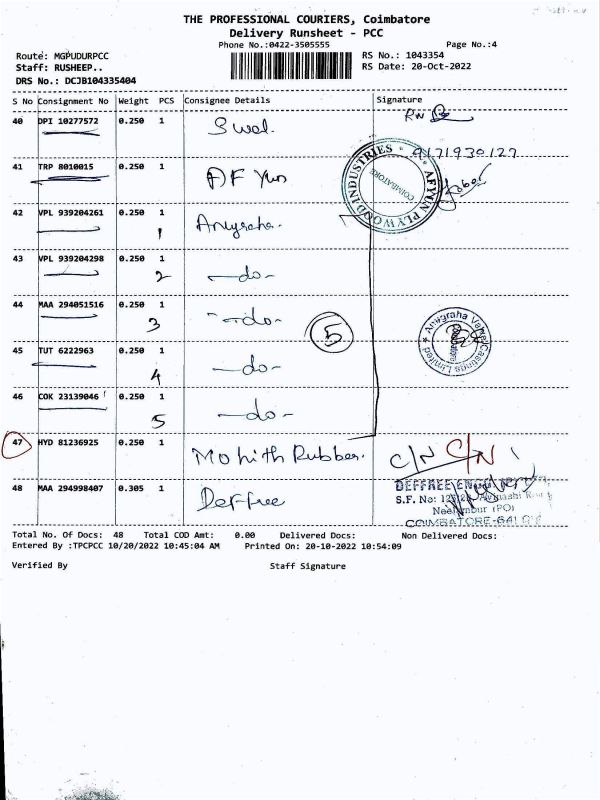 THE PROFESSIONAL COURIERS, Coimbatore
Delivery Runsheet - PCC
Phone No.:0422-3505555 Page No.:4
Route: MGPUDURPCC RS No.: 1043354
Staff: RUSHEEP.. RS Date: 20-Oct-2022
DRS No.: DCJB104335404
S No Consignment No Weight PCS Consignee Details Signature
40 DPI 10277572 0.250 1
9171930127
41 TRP 8010015 0.250 1 AF Yun
AFYUN PLYWOOD INDUSTRIES
COIMBATORE
42 VPL 939204261 0.250 1 Anugraha.
1
43 VPL 939204298 0.250 1 -do-
2
44 MAA 294051516 0.250 1 -do-
3
5
Anugraha Valve Castings Limited
Coimbatore
45 TUT 6222963 0.250 1 -do-
4
46 COK 23139046 0.250 1 -do-
5
47 HYD 81236925 0.250 1 Mohith Rubber. C/N C/N
48 MAA 294998407 0.305 1 Deffree
DEFFREE
S.F. No: Avinashi
(PO)
COIMBATORE-641
Total No. Of Docs: 48 Total COD Amt: 0.00 Delivered Docs: Non Delivered Docs:
Entered By :TPCPCC 10/20/2022 10:45:04 AM Printed On: 20-10-2022 10:54:09
Verified By Staff Signature